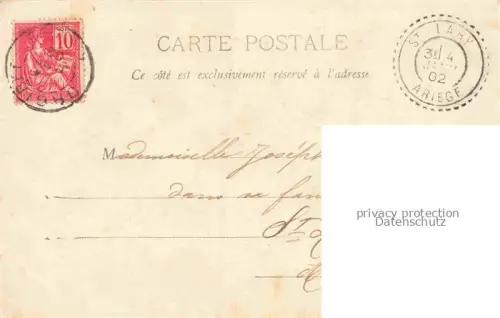 10
CARTE POSTALE
Ce côté est exclusivement réservé à l'adresse
ST LARY
31 4
02
ARIEGE
Mademoiselle Joséph
dans sa fam
St L
privacy protection
Datenschutz